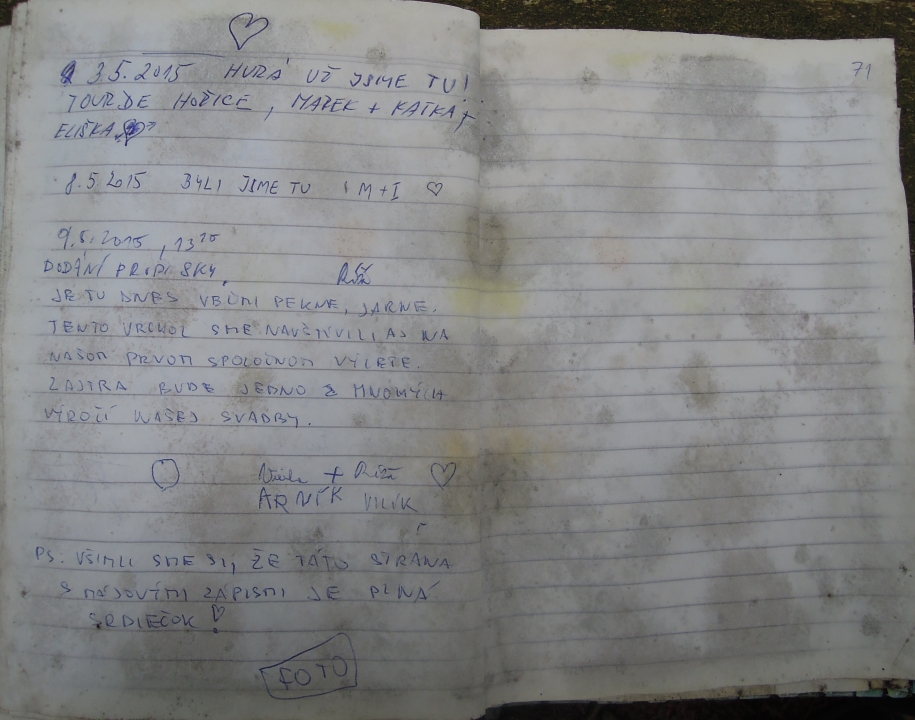 3.5.2015 HURÁ UŽ JSME TU!
TOUR DE HOŘICE, MAREK + KATKA +
ELIŠKA
8.5.2015 BYLI JSME TU M+I ♡
9.5.2015, 13
DODÁNÍ PROPISKY.
JE TU DNES VEĽMI PEKNE, JARNE.
TENTO VRCHOL SME NAVŠTÍVILI AJ NA
NAŠOM PRVOM SPOLOČNOM VÝLETE.
ZAJTRA BUDE JEDNO Z MNOHÝCH
VÝROČÍ NAŠEJ SVADBY.
+ ♡
ARNÍK VILÍK
PS. VŠIMLI SME SI, ŽE TÁTO STRANA
S MÁJOVÝMI ZÁPISMI JE PLNÁ
SRDIEČOK!
FOTO
71